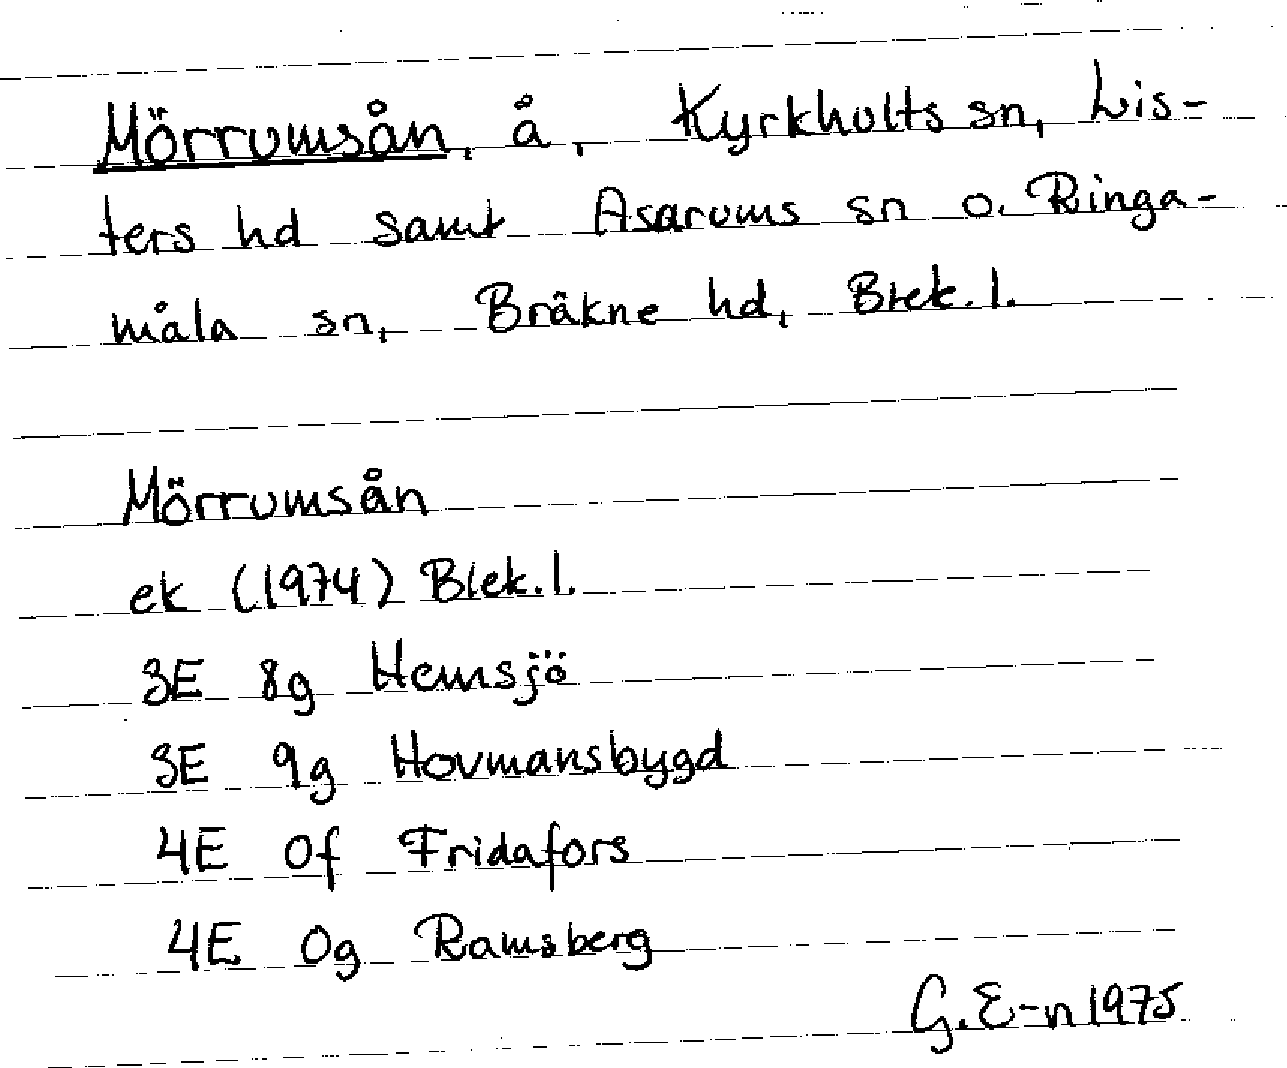 Mörrumsån, å, Kyrkhults sn, Lis-
ters hd samt Asarums sn o. Ringa-
måla sn, Bräkne hd, Blek. l.
Mörrumsån
ek (1974) Blek. l.
3E 8g Hemsjö
3E 9g Hovmansbygd
4E 0f Fridafors
4E 0g Ramsberg
G. E-n 1975